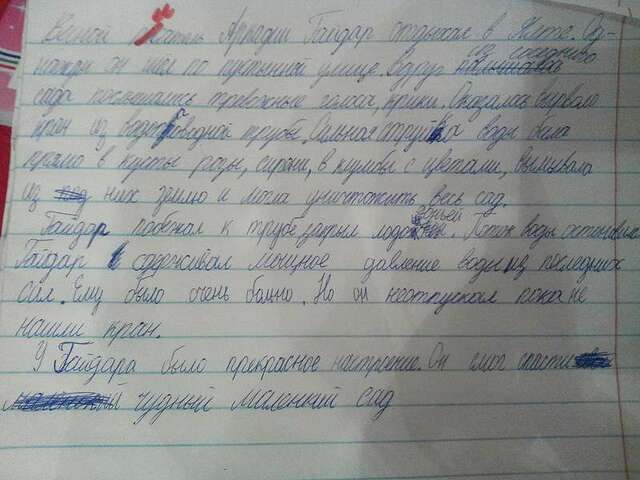 Весной писатель Аркадий Гайдар отдыхал в Ялте. Од-
нажды он шёл по пустынной улице. Вдруг из соседнего
сада послышались тревожные голоса, крики. Оказалось вырвало
кран из водопроводной трубы. Сильная струя воды била
прямо в кусты розы, сирени, в клумбы с цветами, вымывала
из них землю и могла уничтожить весь сад.
Гайдар побежал к трубе зажил ладонью. Поток воды остановился
Гайдар сдерживал мощное давление воды из последних
сил. Ему было очень больно. Но он неотпускал пока не
нашли кран.
У Гайдара было прекрасное настроение. Он смог спасти
чудный маленкий сад